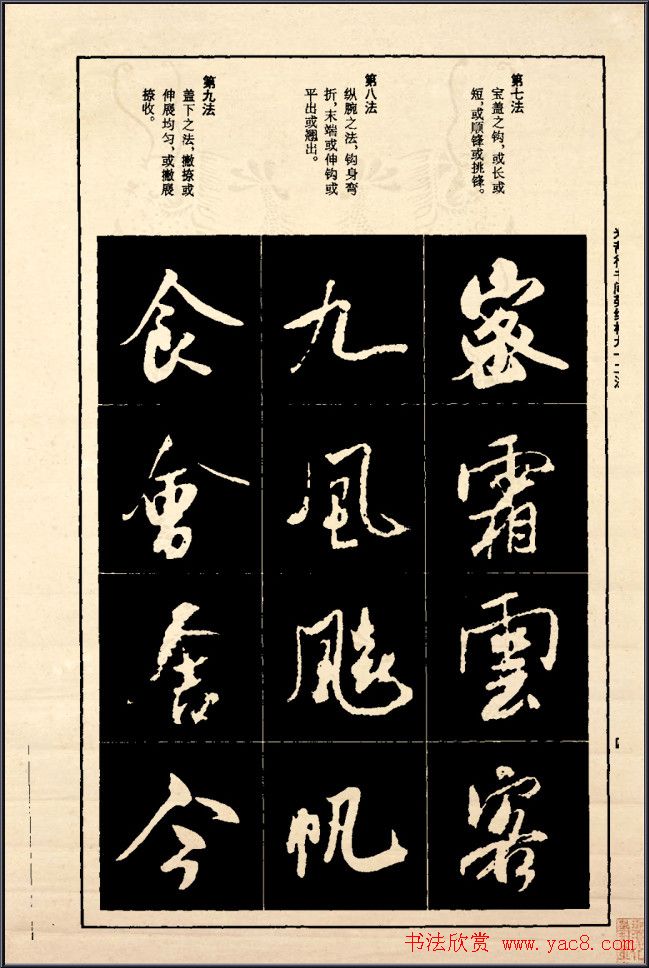 第七法
宝盖之钩，或长或
短，或顺锋或挑锋。
密
霜
雲
第八法
纵腕之法，钩身弯
折，末端或伸钩或
平出或翘出。
九
風
帆
第九法
盖下之法，撇捺或
伸展均匀，或撇展
捺收。
食
會
今
书法欣赏 www.yac8.com